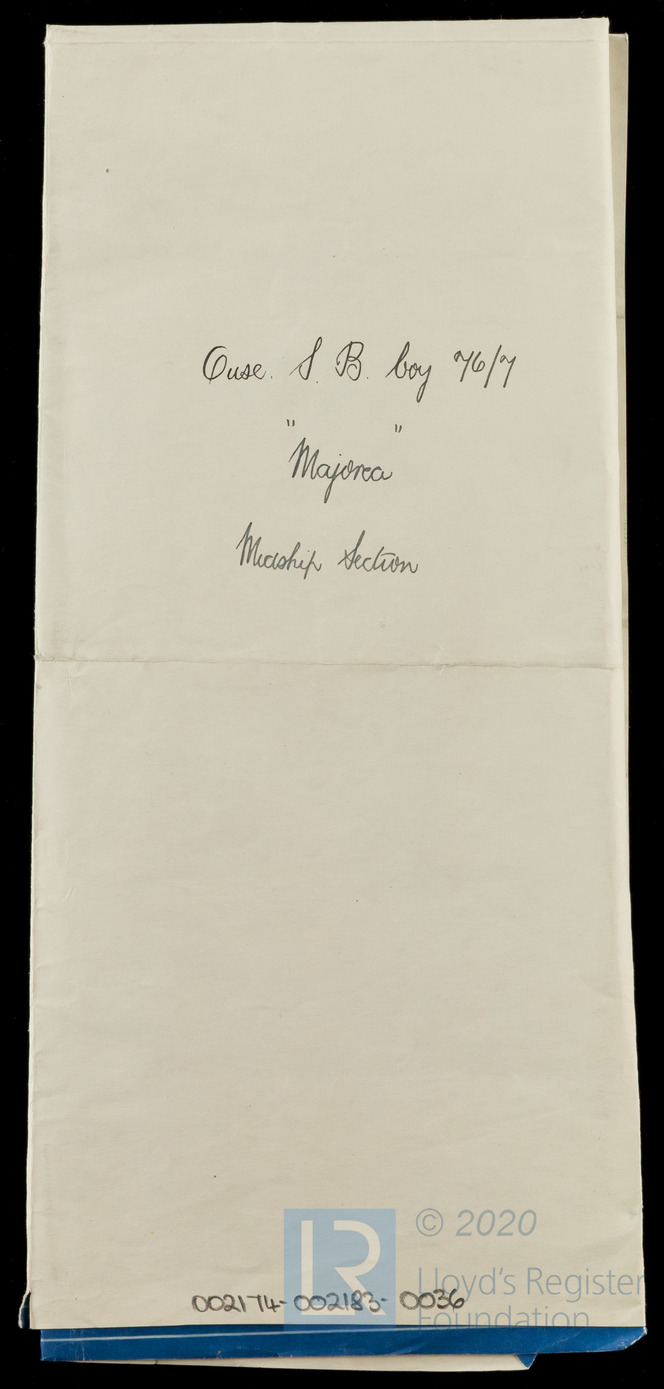 Ouse. S. B. Coy 76/7
"Majorca"
Midship Section
© 2020
LR
Lloyd's Register
Foundation
002174-002183-0036